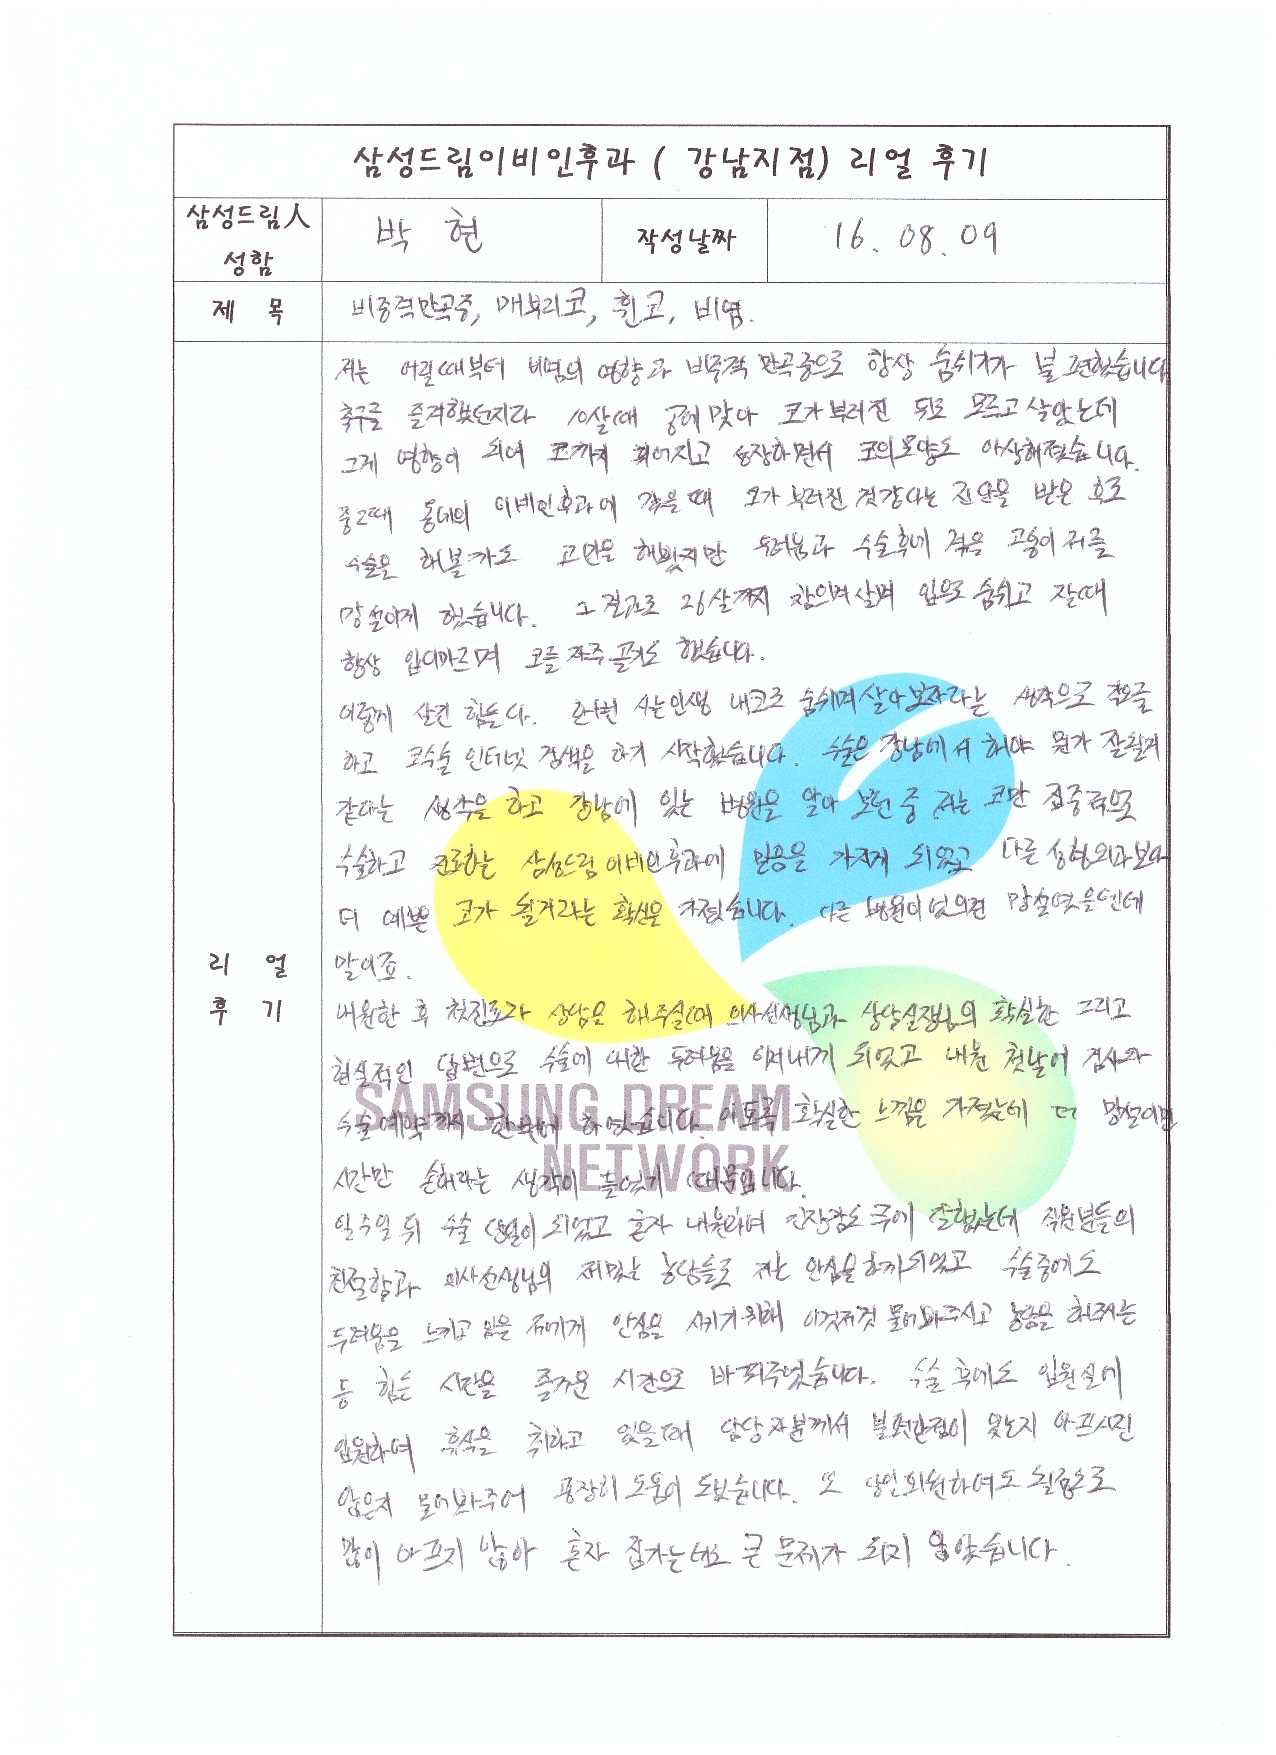 삼성드림이비인후과 ( 강남지점) 리얼 후기
삼성드림人 성함
박 현
작성날짜
16. 08. 09
제 목
비중격만곡증, 매부리코, 휜코, 비염.
리 얼 후 기
저는 어릴때부터 비염의 영향과 비중격 만곡증으로 항상 숨쉬기가 불편했습니다
축구를 즐겨했던지라 10살때 공에 맞아 코가 부러진 뒤로 모르고 살았는데
그게 영향이 되어 코까지 휘어지고 성장하면서 코의모양도 이상해졌습니다.
중2때 동네의 이비인후과에 갔을 때 코가 부러진 것같다는 진단을 받은 후로
수술을 해볼까도 고민을 해봤지만 두려움과 수술후에 겪을 고통이 저를
망설이게 했습니다. 그 결과로 26살까지 참으며살며 입으로 숨쉬고 잘때
항상 입이마르며 코를 자주 골기도 했습니다.
이렇게 살긴 힘들다. 한번 사는인생 내코로 숨쉬며살아보자라는 생각으로
하고 코수술 인터넷 검색을 하기 시작했습니다. 수술은 강남에서 해야 뭔가 잘될거
같다는 생각을 하고 강남에 있는 병원을 알아 보던 중 저는 코만 집중적으로
수술하고 진료하는 삼성드림이비인후과에 믿음을 가지게 되었고 다른 성형외과보다
더 예쁜 코가 될거라는 확신을 가졌습니다. 다른 병원이었으면 망설였을텐데
말이죠.
내원한 후 첫진료과 상담을 해주실때 의사선생님과 상담실장님의 확실한 그리고
현실적인 답변으로 수술에 대한 두려움을 이겨내게 되었고 내원 첫날에 검사와
수술예약까지 한번에 하였습니다. 이토록 확실한 느낌을 가졌는데 더 망설이면
시간만 손해라는 생각이 들었기 때문입니다.
SAMSUNG DREAM
NETWORK
일주일 뒤 수술 당일이 되었고 혼자 내원하여 긴장감도 잘했는데 직원분들의
친절함과 의사선생님의 재밌는 농담들로 저는 안심을하게되었고 수술중에도
두려움을 느끼고 있을 저에게 안심을 시키기위해 이것저것 물어봐주시고 농담을 해주는
등 힘든 시간을 즐거운 시간으로 바꿔주었습니다. 수술 후에도 입원실에
입원하여 휴식을 취하고 있을때 담당자분께서 불편한점이 있는지 아프시진
않은지 물어봐주어 굉장히 도움이 되었습니다. 또 당일퇴원하여도 될정도로
많이 아프지 않아 혼자 집가는데도 큰 문제가 되지 않았습니다.